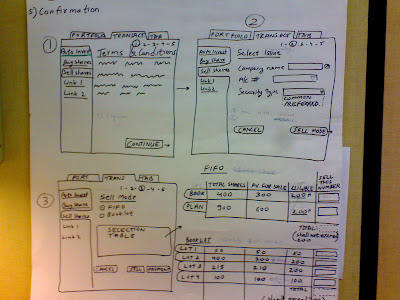 5) Confirmation
①
PORTFOLIO TRANSACT TAB
1-2-3-4-5
Auto Invest
Buy Shares
Sell shares
Link 1
Link 2
Terms & Conditions
CONTINUE
②
PORTFOLIO TRANSACT TAB
1-2-3-4-5
Auto Invest
Buy Share
Sell Shares
Link 1
Link 2
Select Issue
Company name
A/c #
Security Type
COMMON
PREFERRED
CANCEL
SELL MODE
③
PORT TRANS TAB
1-2-3-4-5
Auto Invest
Buy Shares
Sell Shares
Link 1
Link 2
Sell Mode
FIFO
Booklot
SELECTION
TABLE
CANCEL
FIFO
TOTAL SHARES
AV. FOR SALE
SELL
THIS
NUMBER
BOOK 400 300
PLAN 900 600
TOTAL
BOOKLOT
LOT 1 50 50 50
LOT 2 400 200
LOT 3 215 210 200
LOT 4 100 100 100
TOTAL